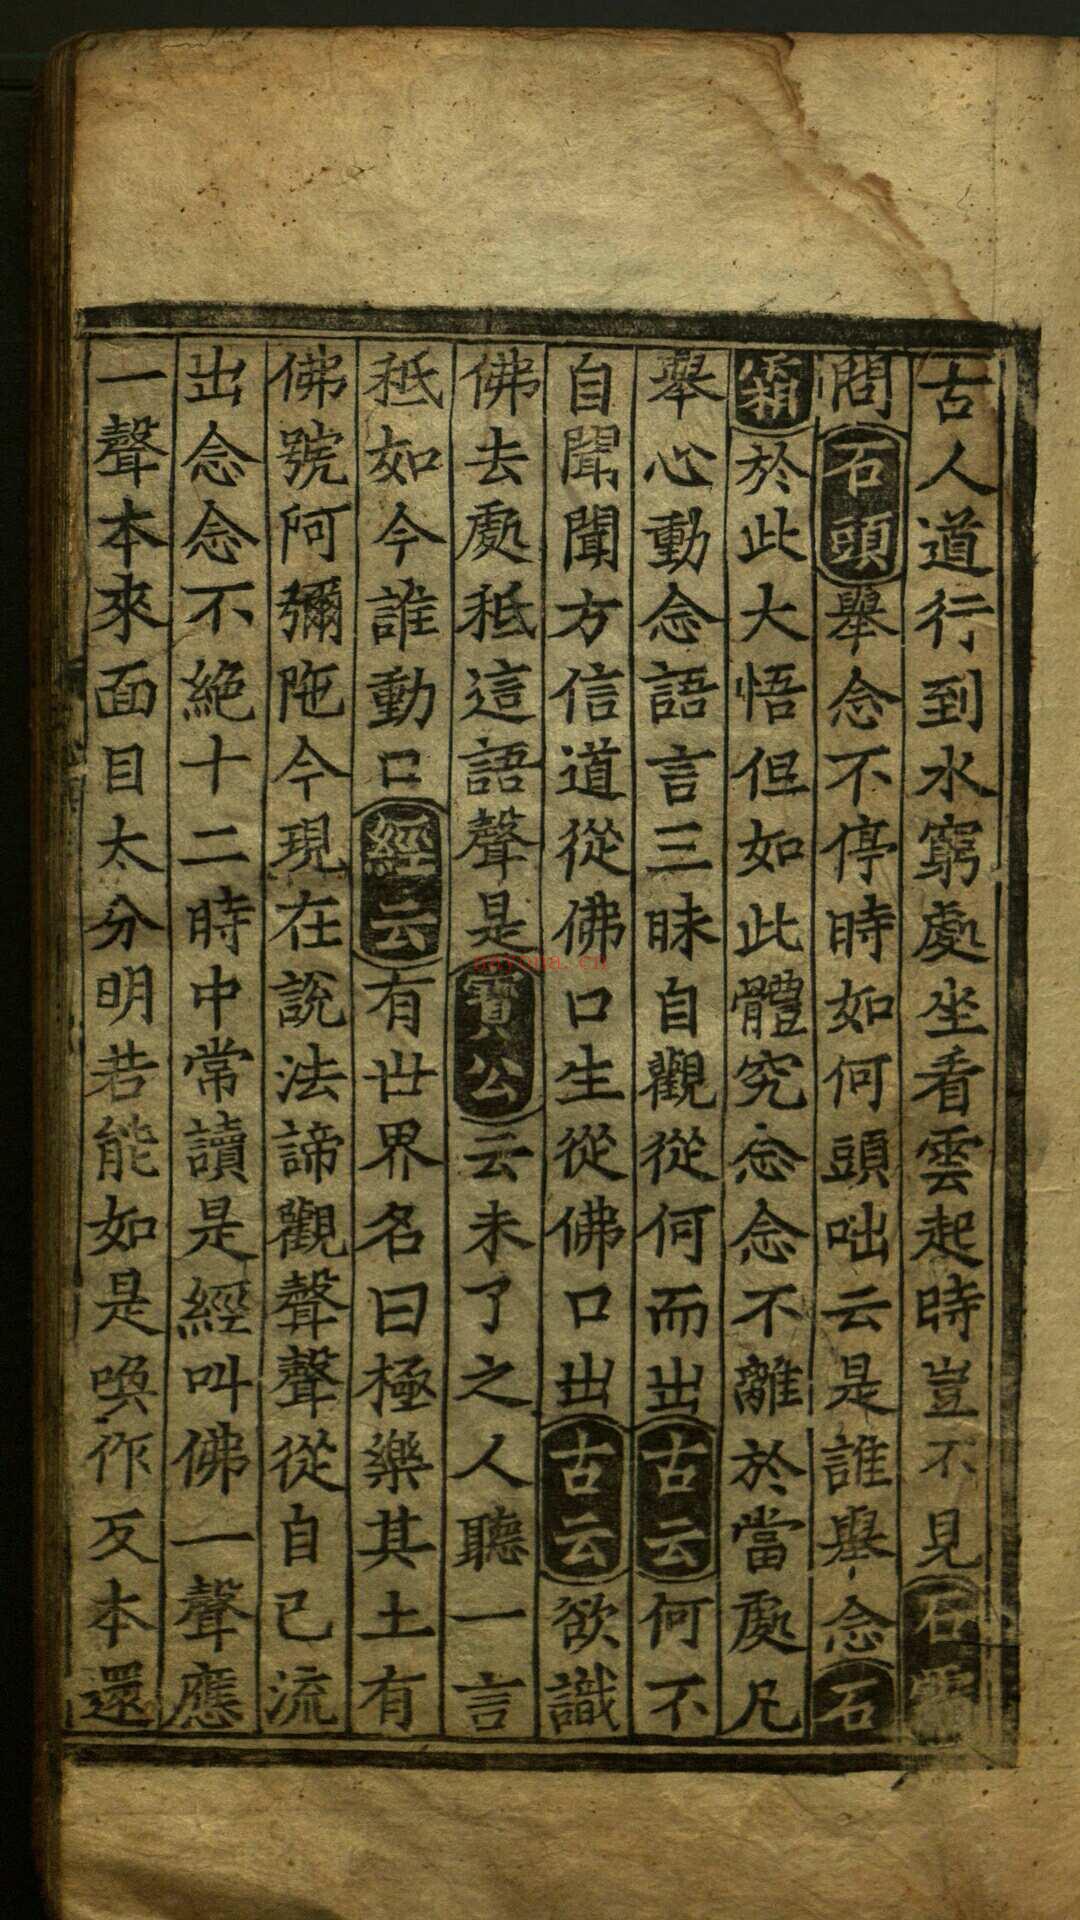 古人道行到水窮處坐看雲起時豈不見石
問石頭舉念不停時如何頭咄云是誰舉念石
霜於此大悟但如此體究念念不離於當處凡
舉心動念語言三昧自觀從何而出古云何不
自聞聞方信道從佛口生從佛口出古云欲識
佛去處秖這語聲是寶公云未了之人聽一言
秖如今誰動口經云有世界名曰極樂其土有
佛號阿彌陁今現在說法諦觀聲聲從自己流
出念念不絕十二時中常讀是經叫佛一聲應
一聲本來面目太分明若能如是喚作反本還
nayona.cn